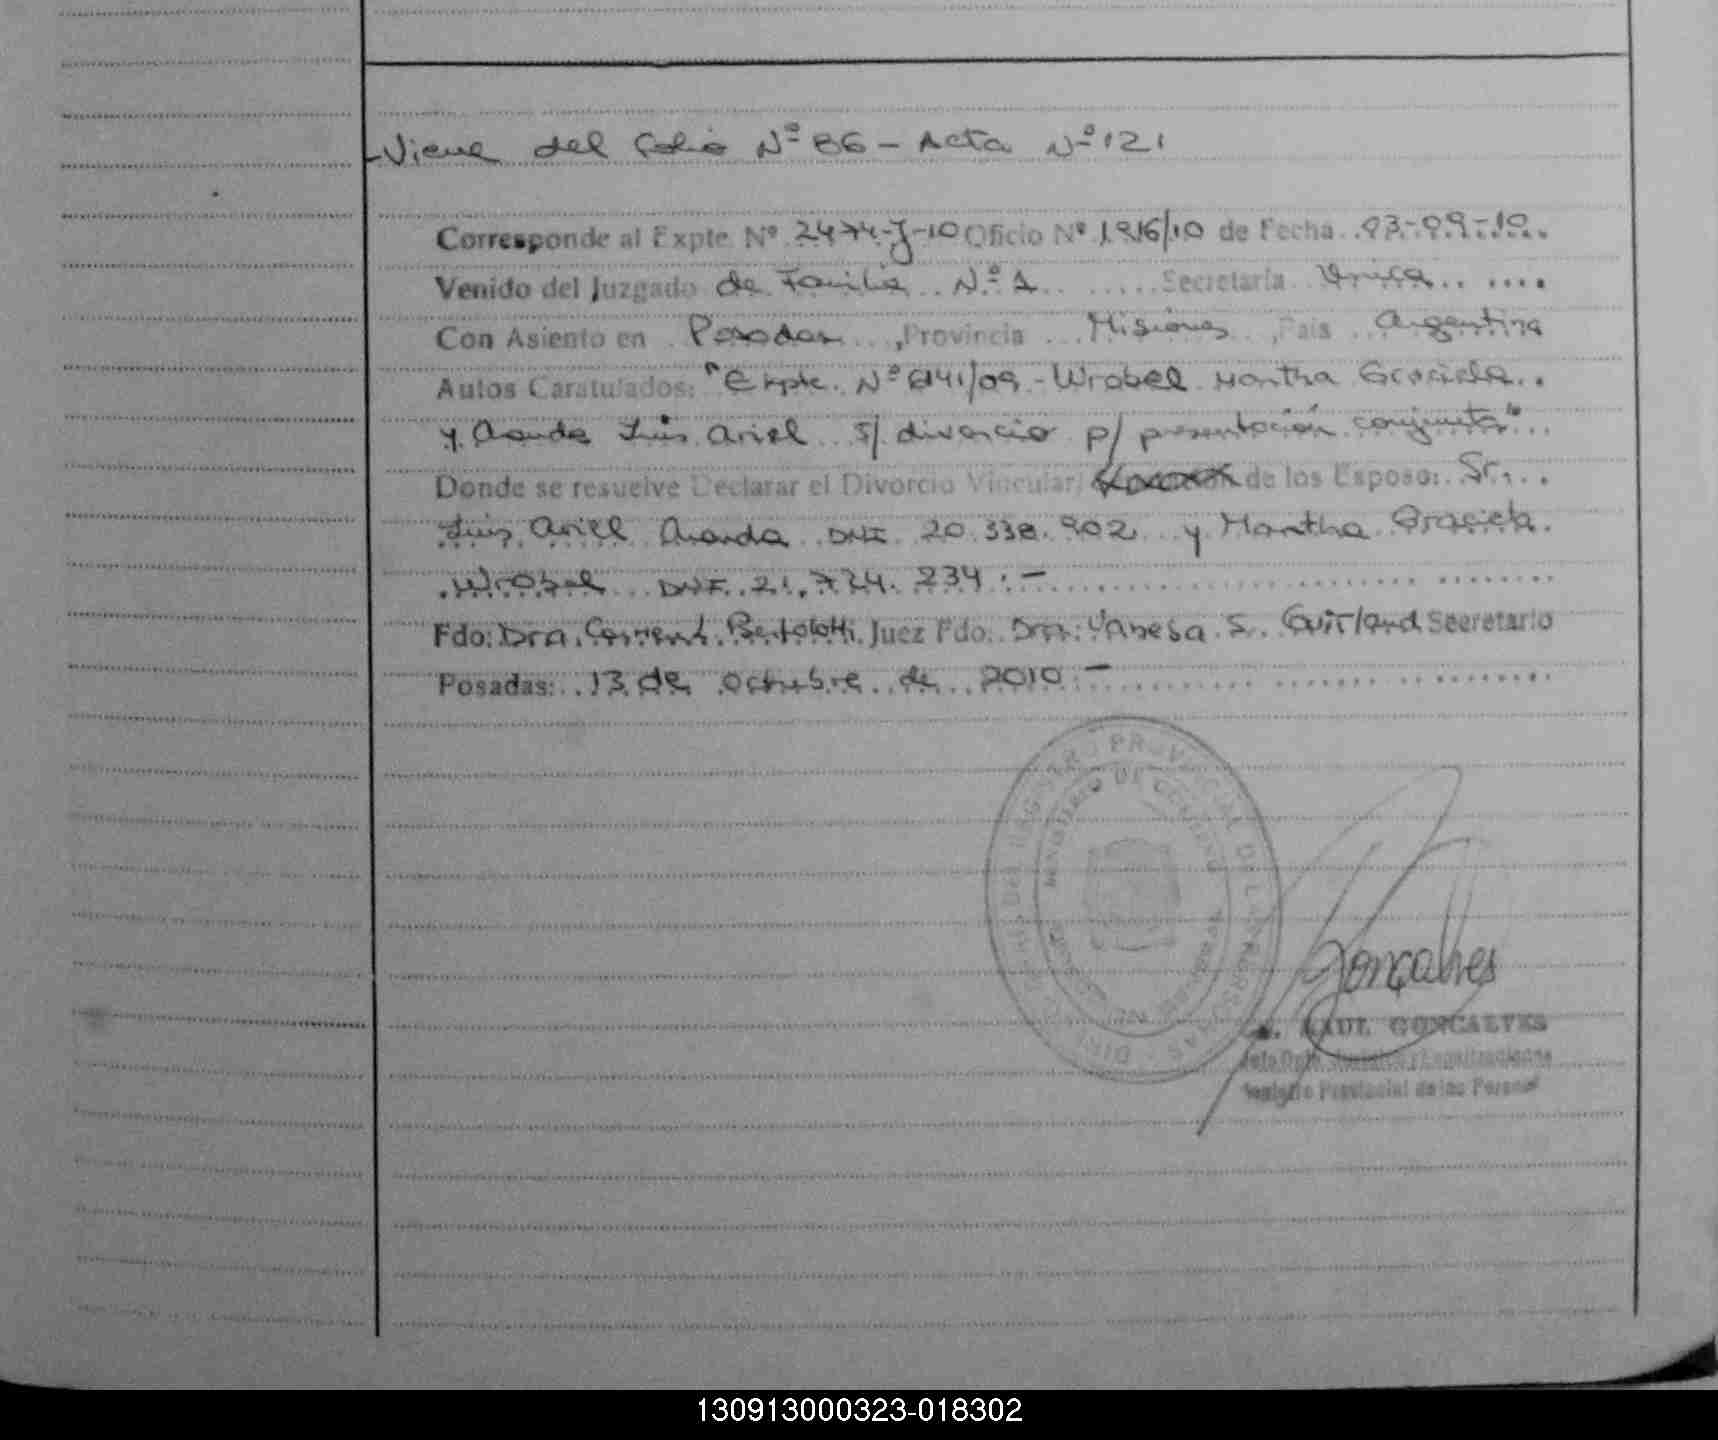 Viene del Folio Nº 86 - Acta Nº 121
Corresponde al Expte. Nº 2474-J-10 Oficio Nº 1916/10 de Fecha 03-09-10
Venido del Juzgado de Familia Nº 1 Secretaría Unica
Con Asiento en Posadas, Provincia Misiones, País Argentina
Autos Caratulados: "Expte. Nº 6141/09 - Wrobel Martha Graciela
y Aranda Luis Ariel s/ divorcio p/ presentación conjunta"
Donde se resuelve Declarar el Divorcio Vincular, de los Esposo: Sr.
Luis Ariel Aranda DNI 20.338.902 y Martha Graciela
Wrobel DNI. 21.724.234.-
Fdo: Dra. Bertolotti Juez Fdo: Dra. Vanesa S. Guirland Secretario
Posadas: 13 de octubre de 2010.-
REGISTRO PROVINCIAL DE LAS PERSONAS
MINISTERIO DE GOBIERNO
Gonçalves
RAUL GONCALVES
Jefe Dpto. Jurídico y Legalizaciones
Registro Provincial de las Person
130913000323-018302